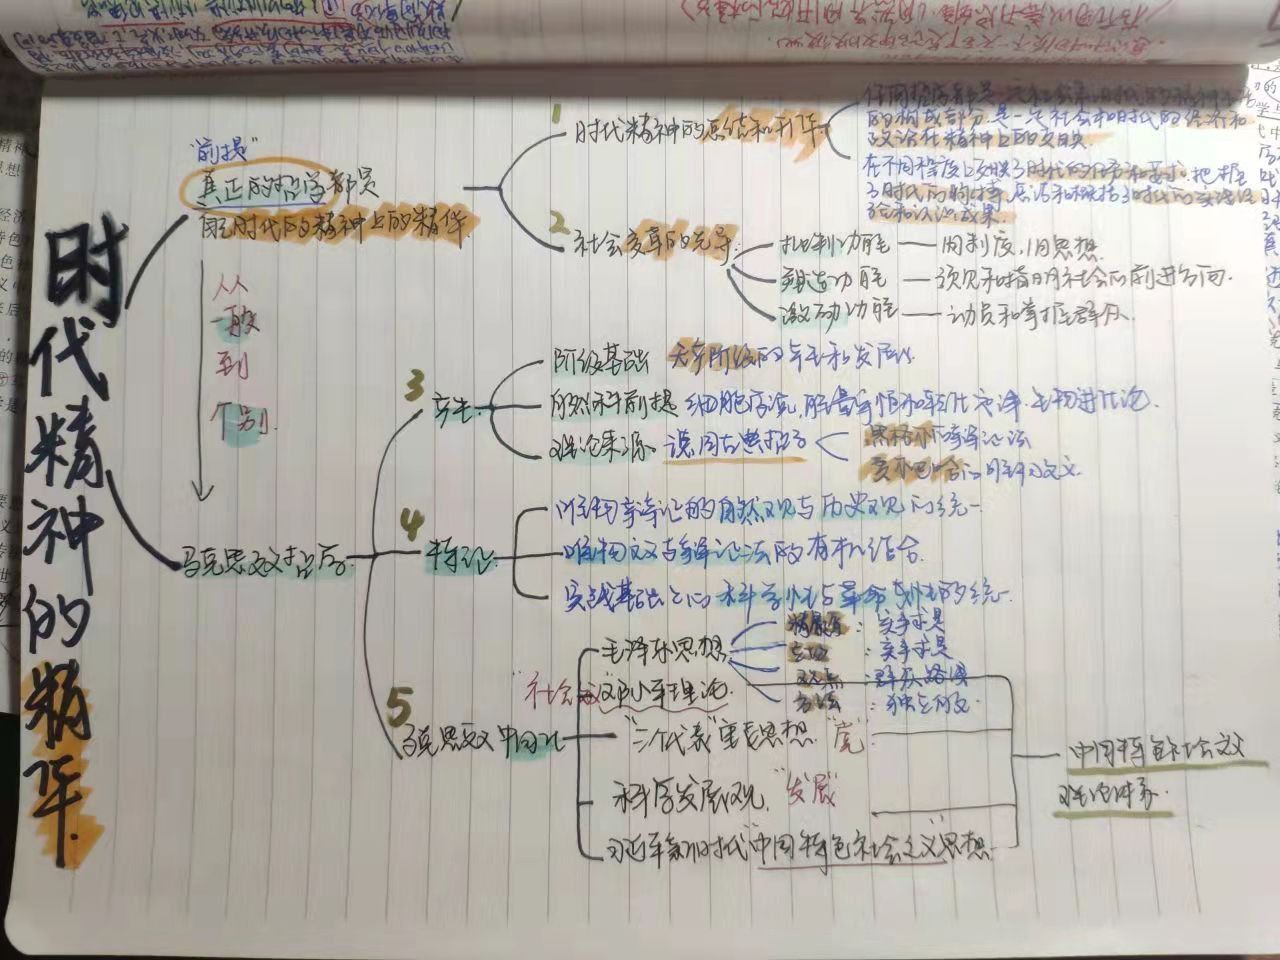 时代精神的精华
"前提"
真正的哲学都是
自己时代的精神上的精华
从
一般
到
个别
1
时代精神的总结和升华
任何哲学都是一定社会和时代的精神生活
的构成部分,是一定社会和时代的经济和
政治在精神上的反映.
在不同程度上反映了时代的任务和要求,把握
了时代的脉搏,总结和概括了时代的实践经
验和认识成果.
2
社会变革的先导
批判功能 — 旧制度,旧思想.
塑造功能 — 预见和指明社会的前进方向.
激动功能 — 动员和掌握群众.
马克思主义哲学
3
产生
阶级基础 无产阶级的产生和发展
自然科前提 细胞学说,能量守恒和转化定律,生物进化论.
理论来源 德国古典哲学
黑格尔的辩证法
费尔巴哈的唯物主义
4
特论
唯物辩证的自然观与历史观的统一
唯物主义与辩证法的有机结合.
实践基础上的科学性与革命性的统一.
5
马克思主义中国化
毛泽东思想
精髓 : 实事求是
立场 : 实事求是
观点 : 群众路线
方法 : 独立自主
"社会主义"邓小平理论.
"三个代表"重要思想 "党"
科学发展观. "发展"
习近平新时代"中国特色社会主义"思想
中国特色社会主义
理论体系.